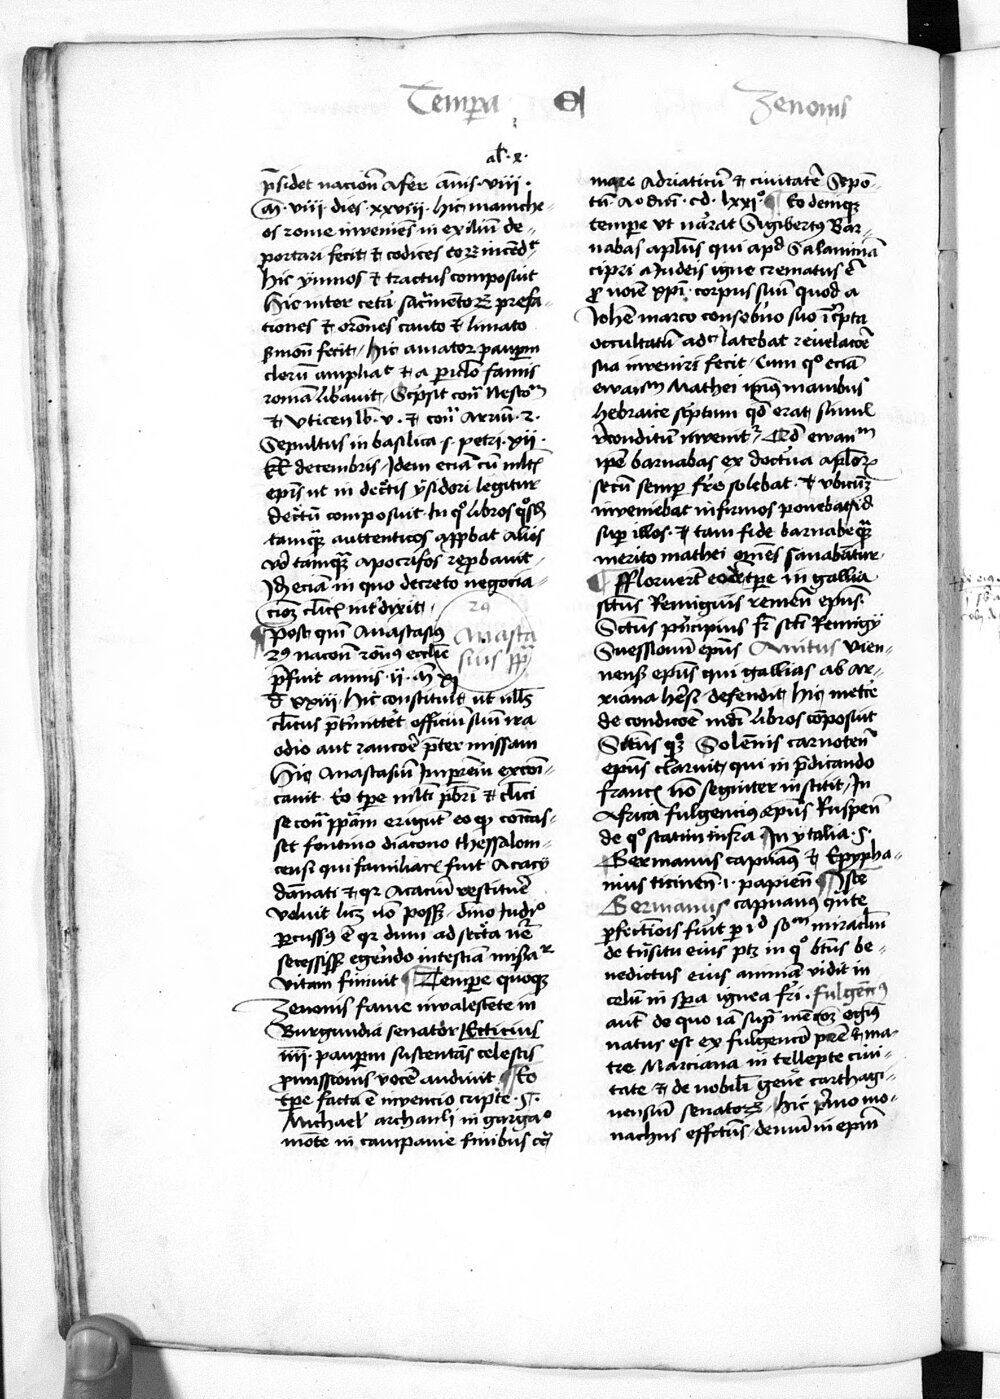 Tempa Zenonis
al' x.
p̄sidet nacioñ Afer ānis viii.
m̄ viii dies xxviii. hic maniche-
os rome invenies in exiliū de-
portari fecit & codices eoꝝ incend't
hic ymnos & tractus composuit
hic inter cetā sac̄mentoꝝ prefa-
ciones & oroēes cauto & limato
s̄moñ fecit, hic amator pauperū
clerū ampliat & a periclo famis
romā libavit, Scpsit cont' Nestoꝝ
& Uticen lb. v. & cont' Arriū 2.
Sepultus in basilica s. petri xii.
kl' decembris, Idem eciā cū mltꝭ
epis ut in decᵗis ysidori legitur
decᵗū composuit. In qͦ libros qͦsdā
tamqꝫ auttenticos appbat Alios
v̄o tamqꝫ apocrifos repbavit
Id eciā in quo decreto negocia-
cioꝫ clicꝭ int'dixit,
Post quē Anastasius
29 nacoñ roꝰ ecclie
p̄fuit annis ii. m̄ xi
d xxiii. hic constituit ut ull's
clicus p̄t'mittet officiū suū ira
odio aut rancore p̄ter missam
hic Anastasiū Impērem excoī-
cavit. Eo tpe mlti pbri & clici
se cont' ppam erigut eo qͥ coīcas-
set fontino diacono thessalom-
censi qui familiarꝭ fuit Acacij
dānati & qr acaciū restitūe
voluit licꝫ nō possꝫ. diuno Iudiͦ
percussꝰ ē qr dum ad secᵗa nē
secessissꝫ egerēdo intestiā misᵃr
vitam finivit Tempe quoqꝫ
Zenonis fame invalesc̄te in
Burgundia senator Ecticius
iiii. pauperū sustentās celestis
pmissionis vocē audivit Eo
tpe facta ē invencio cripte S.
Michael archanli in gargaͦ
mōte in campanie finibus cᵃ
29
Anasta
sius pp
mare Adriaticū & civitatē Sepō-
tū Ao dni cd. lxxiͦ Eo denique
tempe ut nārat Sigibertꝰ Bar-
nabas aplus qui apd Salaminā
cipri a Iudeis igne crematus ē
p noīe xpi. corpus suū quod a
Iohē marco consobrino suo ī cᵣpta
occultatū adͨ latebat revelacōe
sua inveniri fecit, Cum qͦ eciā
ewāiū Mathei ipius manibus
hebraice scptum qd erat simul
recondītū invenit, Qd ewanᵐ
ipe barnabas ex doctᵘa aploꝝ
secū semp f're solebat. & ubicūqꝫ
inveniebat infirmos ponebat id
sup illos. & tam fide barnabe qꝫ
merito mathei omēs sanabātur.
fflorverūt eodē tpe in gallia
sctus Remigius remēn epus.
Sctus principius fr̄ scti Remigij
Suessionū epus Avitus vien-
nensꝭ epus qui gallias ab Ar-
riana hēsi defendit hic metce
de condicoē mdi libros cōposuit
Sctus qꝫ Solēnis carnoteñ
epus claruit, qui in p̄dicando
francꝭ nō segniter institit, In
Africa fulgenciꝰ epus Ruspeñ
de qͦ statim infra In ytalia S.
Germanus capuanꝰ & Epypha-
nius ticineñ. i. papieñ Iste
Germanus capuanꝰ qnte
pfectiōis fuit p īd soᵐ miraclm
de trāsitu eius ptꝫ in qͦ btus be-
nedictus eius animā vidit in
celū in spera ignea f'ri. fulgenꝰ
aut de quo iā sup mēcoꝫ egimꝰ
natus est ex fulgencō patre & ma-
tre Marciana in tellepte civi-
tate & de nobili genē carthagi-
nensiū senatoꝝ, hic p̄mo mo-
nachus effctus, demū in epm